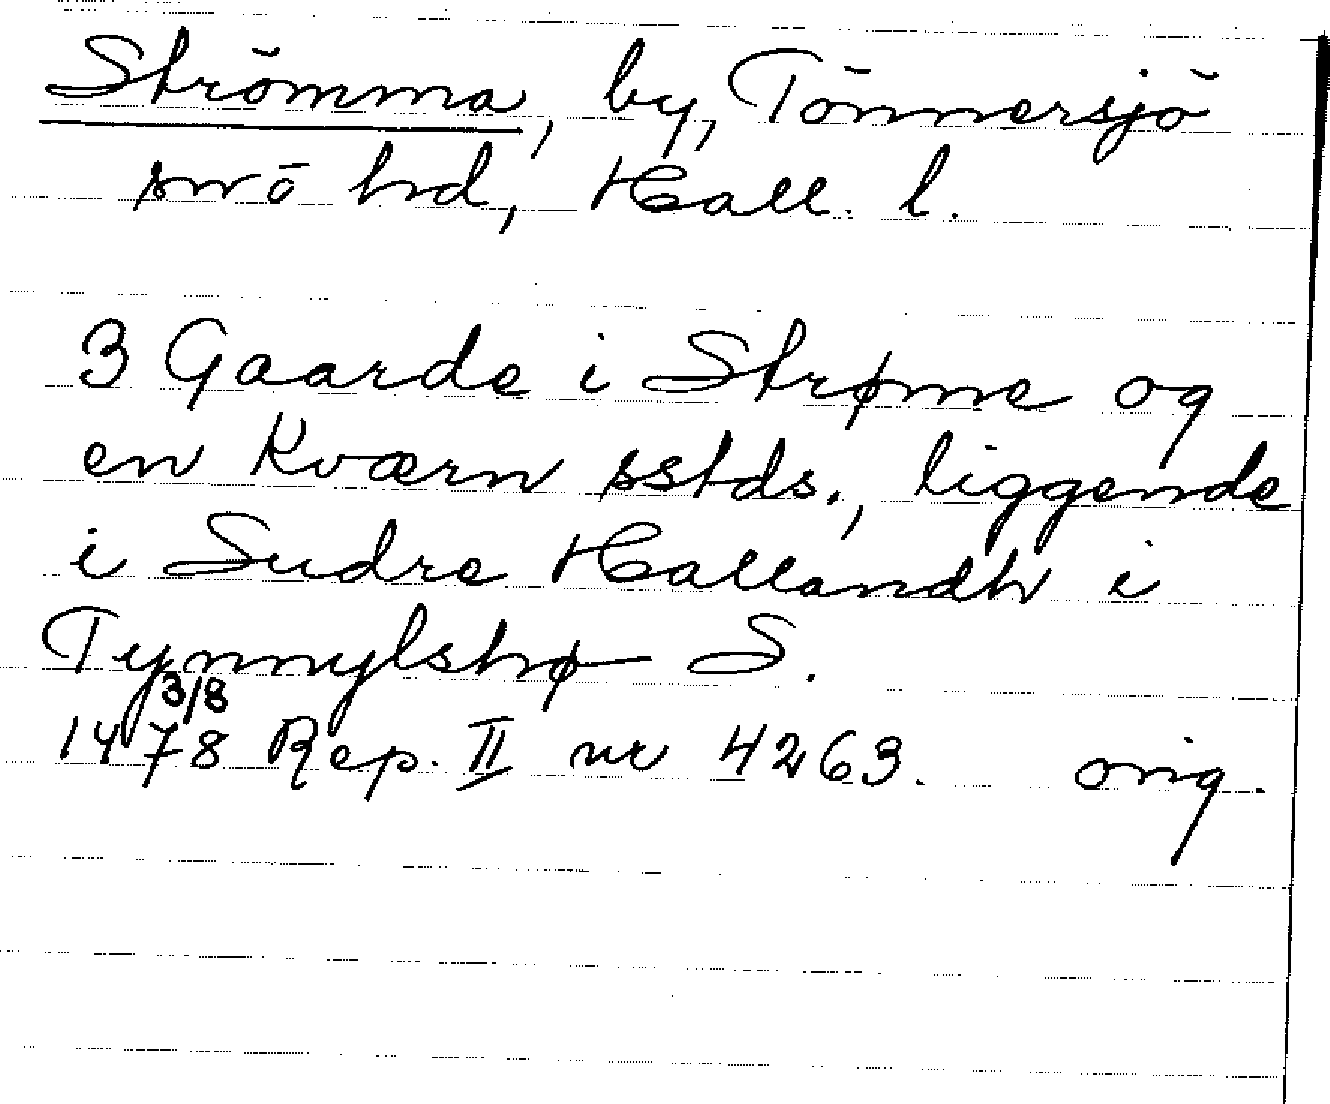 Strömma, by, Tönnersjö
sn o hd, Hall. l.
3 Gaarde i Strøme og
en Kværn sstds., liggende
i Sudre Hallandh i
Tynnylstrø S.
3/8
1478 Rep. II nr 4263. orig.